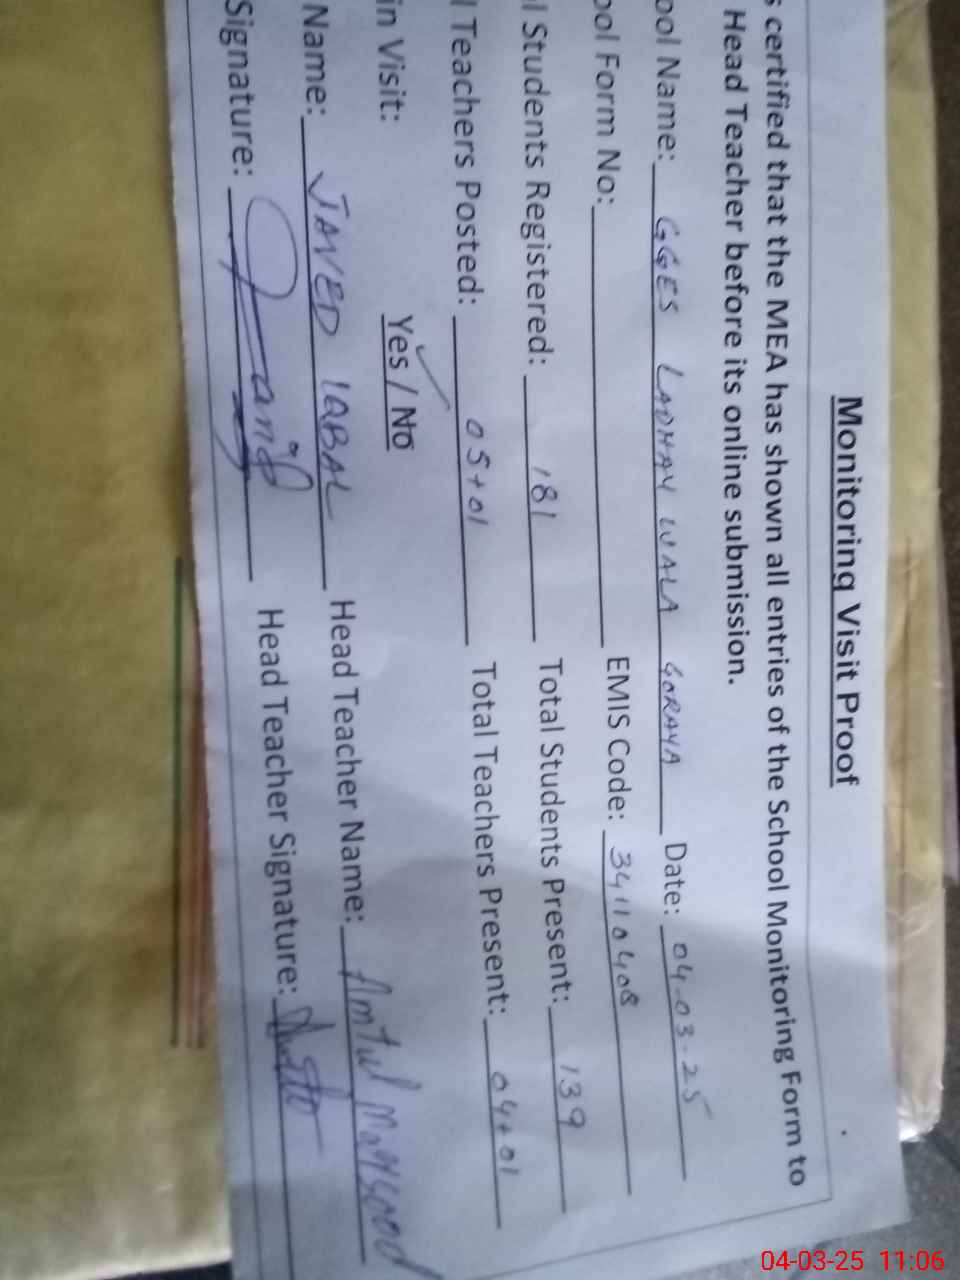 Monitoring Visit Proof
s certified that the MEA has shown all entries of the School Monitoring Form to
Head Teacher before its online submission.
ool Name: GGES LADHAY WALA GORAYA Date: 04-03-25
ool Form No: EMIS Code: 34110408
l Students Registered: 181 Total Students Present: 139
l Teachers Posted: 05+01 Total Teachers Present: 04+01
in Visit: Yes / No
Name: JAVED IQBAL Head Teacher Name: Amtul Maysood
Signature: Head Teacher Signature:
04-03-25 11:06